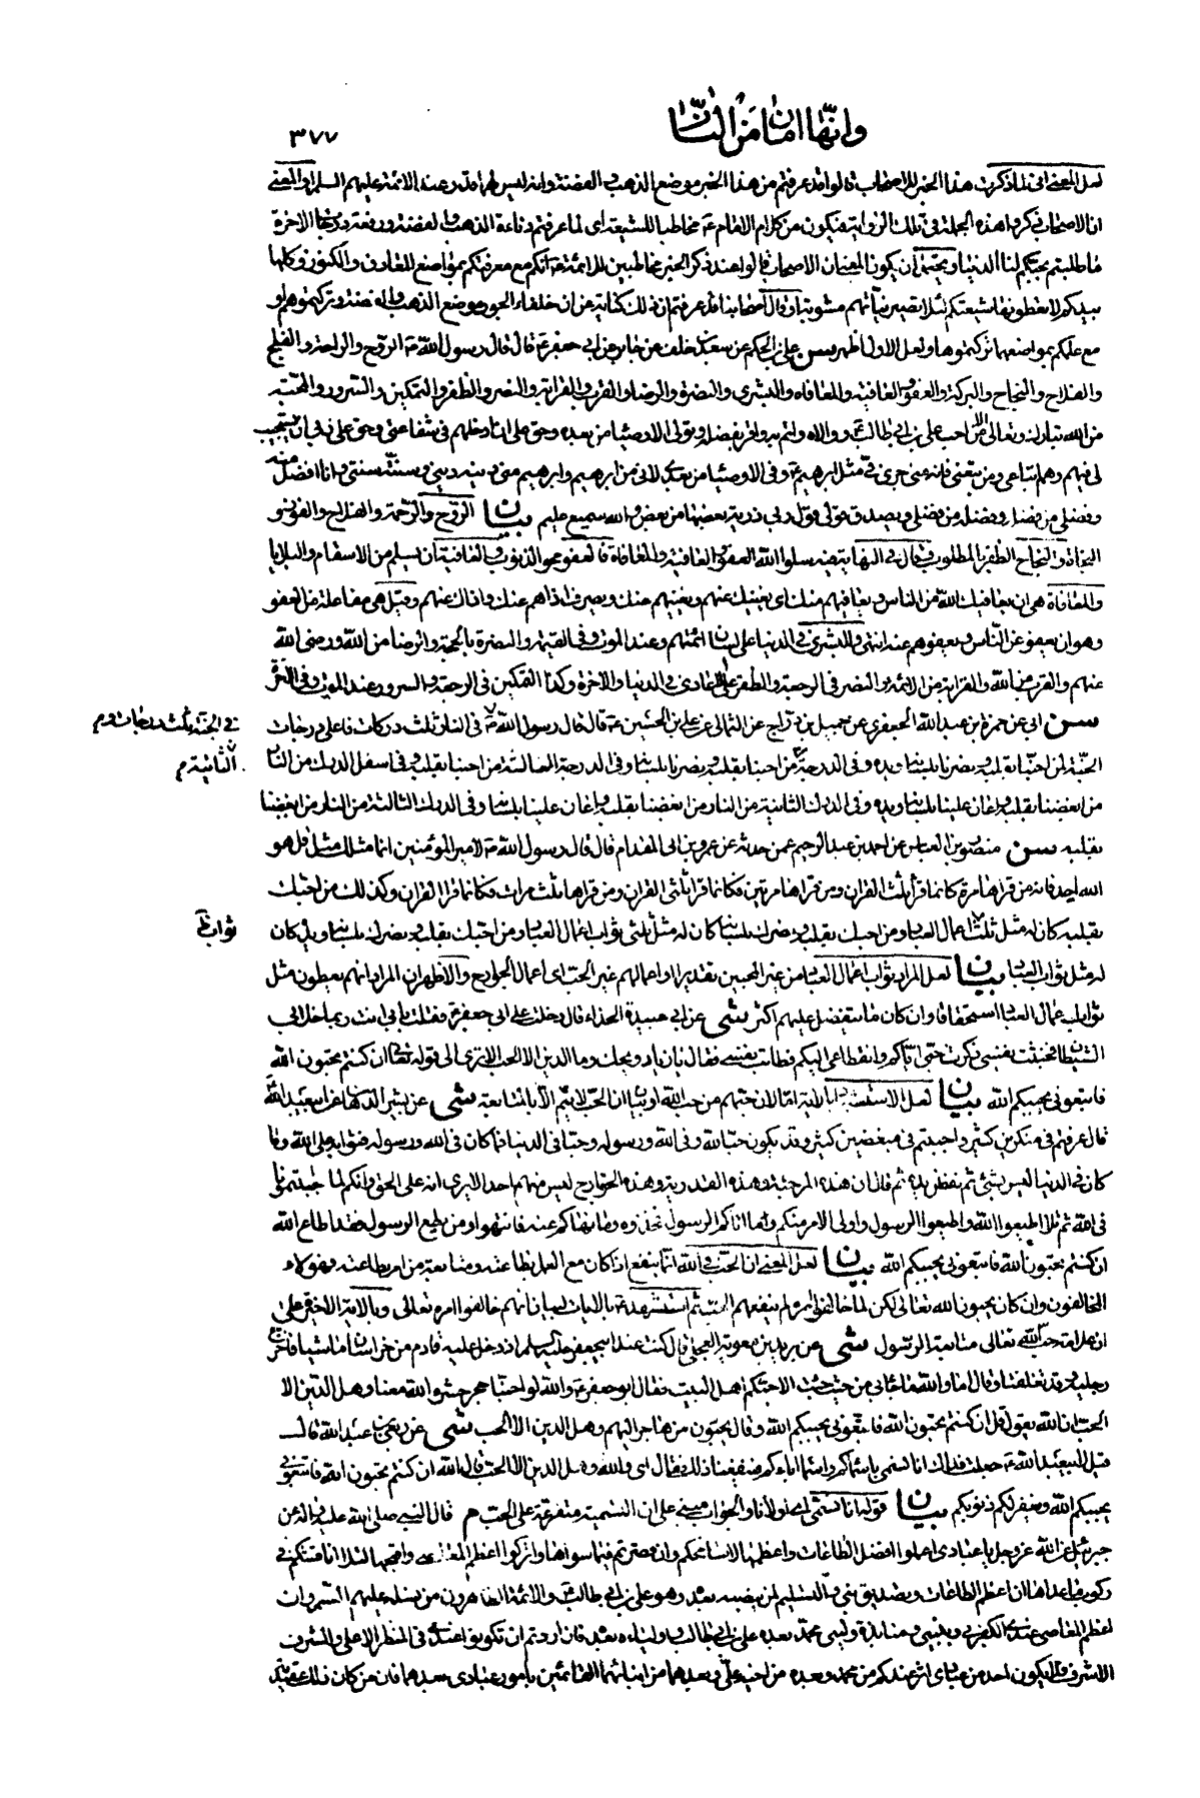 وانّها امان من النّار
٣٧٧
لعل المعنى انى لما ذكرت هذا الخبر للاصحاب قالوا قد عرفتم من هذا الخبر موضع الذهب والفضة وانه ليس لهما قدر عند الائمة عليهم السلم او المعنى
ان الاصحاب ذكروا هذه الجملة فى تلك الرواية فيكون من كلام الامام ع مخاطبا للشيعة اى لما عرفتم دناءة الذهب والفضة ورفعة درجات الاخرة
ما طلبتم بحبكم لنا الدنيا ويحتمل ان يكون المعنى ان الاصحاب قالوا عند ذكر الخبر مخاطبين للائمة ع انكم مع معرفتكم بمواضع المعادن والكنوز وكلها
بيدكم لا تعطونها شيعتكم لئلا تصير نياتهم مشوبة او قال اصحابنا قد عرفتم ان ذلك كناية عن ان خلفاء الجور موضع الذهب والفضة وتركتموهم لو
مع علمكم بمواضعها تركتموها ولعل الاول اظهر سن على بن الحكم عن سعد بن خلف عن جابر عن ابى جعفر ع قال قال رسول الله ص الروح والراحة والفلج
والفلاح والنجاح والبركة والعفو والعافية والمعافاة والبشرى والنضرة والرضا والقرب والقرابة والنصر والظفر والتمكين والسرور والمحبة
من الله تبارك وتعالى على من احب على بن ابى طالب ع ووالاه وائتم به واقر بفضله وتولى الاوصياء من بعده وحق على ان ادخلهم فى شفاعتى وحق على ربى ان يستجيب
لى فيهم وهم اتباعى ومن تبعنى فانه منى جرى فىّ مثل ابرهيم ع وفى الاوصياء من بعدى لانى من ابرهيم وابرهيم منى دينه دينى وسنته سنتى وانا افضل منه
وفضلى من فضله وفضله من فضلى وتصديق قولى قول ربى ذرية بعضها من بعض والله سميع عليم بيان الروح والرحمة والفلاح والفوز
النجاة والنجاح الظفر بالمطلوب وقال فى النهاية فيه سلوا الله العفو والعافية والمعافاة فالعفو محو الذنوب والعافية ان يسلم من الاسقام والبلايا
والمعافاة هى ان يعافيك الله من الناس ويعافيهم منك اى يغنيك عنهم ويغنيهم عنك ويصرف اذاهم عنك واذاك عنهم وقيل هى مفاعلة من العفو
وهو ان يعفو عن الناس ويعفو هم عنه انتهى والبشرى فى الدنيا على لسان ائمتهم وعند الموت وفى القيمة والنضرة بالحجة والرضا من الله ورضى الله
عنهم والقرب من الله والقرابة من الائمة والنصر فى الرجعة والظفر على الاعادى فى الدنيا والاخرة وكذا التمكين فى الرجعة والسرور عند الموت وفى الاخرة
سن ابى عن حمزة بن عبد الله الجعفرى عن جميل بن دراج عن الثمالى عن على بن الحسين ع قال قال رسول الله ص فى النار ثلث دركات فاعلى درجات
فى الجنة ثلث درجات و م
الجنة لمن احبنا بقلبه ونصرنا بلسانه ويده وفى الدرجة من احبنا بقلبه ونصرنا بلسانه وفى الدرجة الثالثة من احبنا بقلبه وفى اسفل الدرك من النار
الثانية م
من ابغضنا بقلبه واعان علينا بلسانه ويده وفى الدرك الثانية من النار من ابغضنا بقلبه واعان علينا بلسانه وفى الدرك الثالثة من النار من ابغضنا
بقلبه سن منصور بن العباس عن احمد بن عبد الرحيم عمن حدثه عن عمرو بن ابى المقدام قال قال رسول الله ص لامير المؤمنين انما مثلك مثل قل هو
الله احد فانه من قراها مرة فكانما قرا ثلث القران ومن قراها مرتين فكانما قرا ثلثى القران ومن قراها ثلث مرات فكانما قرا القران وكذلك من احبك
بقلبه كان له مثل ثلث اعمال العباد ومن احبك بقلبه ونصرك بلسانه كان له مثل ثلثى ثواب اعمال العباد ومن احبك بقلبه ونصرك بلسانه ويده كان
ثواب
له مثل ثواب العباد بيان لعل المراد ثواب اعمال العباد من غير المحبين تقديرا او اعمالهم غير الحب اى اعمال الجوارح والاظهر ان المراد انهم يعطون مثل
ثواب اعمال العباد استحقاقا وان كان ما يتفضل عليهم اكثر شى عن ابى عبيدة الحذاء قال دخلت على ابى جعفر ع فقلت بابى انت ربما خلا بى
الشيطان فخبثت نفسى ثم ذكرت حبى اياكم وانقطاعى اليكم فطابت نفسى فقال يا زياد ويحك وما الدين الا الحب الا ترى الى قوله تعالى ان كنتم تحبون الله
فاتبعونى يحببكم الله بيان لعل الاستشهاد بالاية اما لان حبهم من حب الله او بيان ان الحب لا يتم الا بالمتابعة شى عن بشير الدهان عن ابى عبد الله ع
قال عرفتم فى منكرين كثير واحببتم فى مبغضين كثير وقد يكون حبا لله وفى الله ورسوله وحبا فى الدنيا فما كان فى الله ورسوله فثوابه على الله وما
كان فى الدنيا فليس بشئ ثم نفض يده ثم قال ان هذه المرجئة وهذه القدرية وهذه الخوارج ليس منهم احد الا يرى انه على الحق وانكم انما احببتمونا
فى الله ثم تلا اطيعوا الله واطيعوا الرسول واولى الامر منكم وما اتاكم الرسول فخذوه وما نهاكم عنه فانتهوا ومن يطع الرسول فقد اطاع الله
ان كنتم تحبون الله فاتبعونى يحببكم الله بيان لعل المعنى ان الحب فى الله انما ينفع اذا كان مع العمل بطاعته ومتابعة من امر بطاعته وهؤلاء
المخالفون وان كان يحبون الله تعالى لكن لما خالفوا امره لم ينفعهم الحب ثم استشهد ع بالايات لبيان انهم خالفوا امره تعالى وبالاية الاخيرة على
ان علامة حب الله تعالى متابعة الرسول شى عن بريد بن معوية العجلى قال كنت عند ابى جعفر عليه السلم اذ دخل عليه قادم من خراسان ماشيا فاخرج
رجليه وقد تغلفتا وقال اما والله ما جاء بى من حيث جئت الا حبكم اهل البيت فقال ابو جعفر ع والله لو احبنا حجر حشره الله معنا وهل الدين الا
الحب ان الله يقول قل ان كنتم تحبون الله فاتبعونى يحببكم الله وقال يحبون من هاجر اليهم وهل الدين الا الحب شى عن ربعى بن عبد الله قال
قيل لابى عبد الله ع جعلت فداك انا نسمى باسمائكم واسماء ابائكم فينفعنا ذلك فقال اى والله وهل الدين الا الحب قال الله ان كنتم تحبون الله فاتبعونى
يحببكم الله ويغفر لكم ذنوبكم بيان قوله انا نسمى اى اولادنا والجواب مبنى على ان التسمية متفرعة على الحب م قال النبى صلى الله عليه واله عن
جبرئيل عن الله عز وجل يا عبادى اعملوا افضل الطاعات واعظمها لاسامحكم وان قصرتم فيما سواها واتركوا اعظم المعاصى واقبحها لئلا اناقشكم فى
ركوب ما عداها ان اعظم الطاعات وتصديق نبى والتسليم لمن نصبه بعده وهو على بن ابى طالب والائمة الطاهرون من نسله عليهم السلم وان
اعظم المعاصى عندى الكفر بى وبنبيى ومنابذة ولى محمد بعده على بن ابى طالب واولياءه بعده فان اردتم ان تكونوا عندى فى المنظر الاعلى والشرف
الاشرف فلا يكونن احد من عبادى اثر عندكم من محمد وبعده من اخيه على وبعدهما من ابنائهما القائمين بامور عبادى بعدهما فان من كان ذلك عقيدته